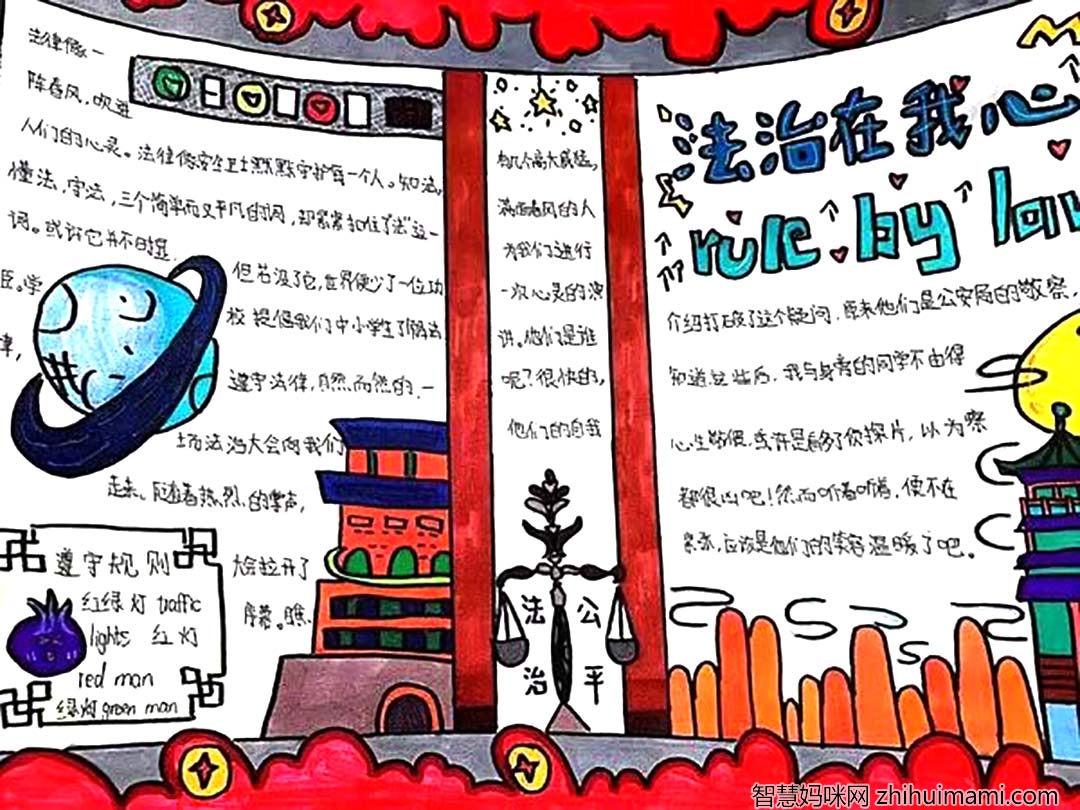 法律像一
阵春风，吹进
人们的心灵。法律像安全卫士默默守护每一个人。知法，
懂法，守法，三个简单而又平凡的词，却紧紧扣住了"法"这一
词。或许它并不明显
但若没了它，世界便少了一位功
臣。学
校提倡我们中小学生了解法
律，
遵守法律，自然而然的，一
场法治大会向我们
走来。随着热烈的掌声，
大会拉开了
序幕。瞧
遵守规则
红绿灯 traffic
lights 红灯
red man
绿灯 green man
有几个高大威猛，
满面春风的人
为我们进行
一次心灵的演
讲。他们是谁
呢？很快的，
他们的自我
法 公
治 平
法治在我心
rule by law
介绍打破了这个疑问，原来他们是公安局的警察，
知道这些后，我与身旁的同学不由得
心生敬畏，或许是看多了侦探片，以为察
都很凶吧！然而听着听着，便不在
紧张，应该是他们的笑容温暖了吧。
智慧妈咪网 zhihuimami.com